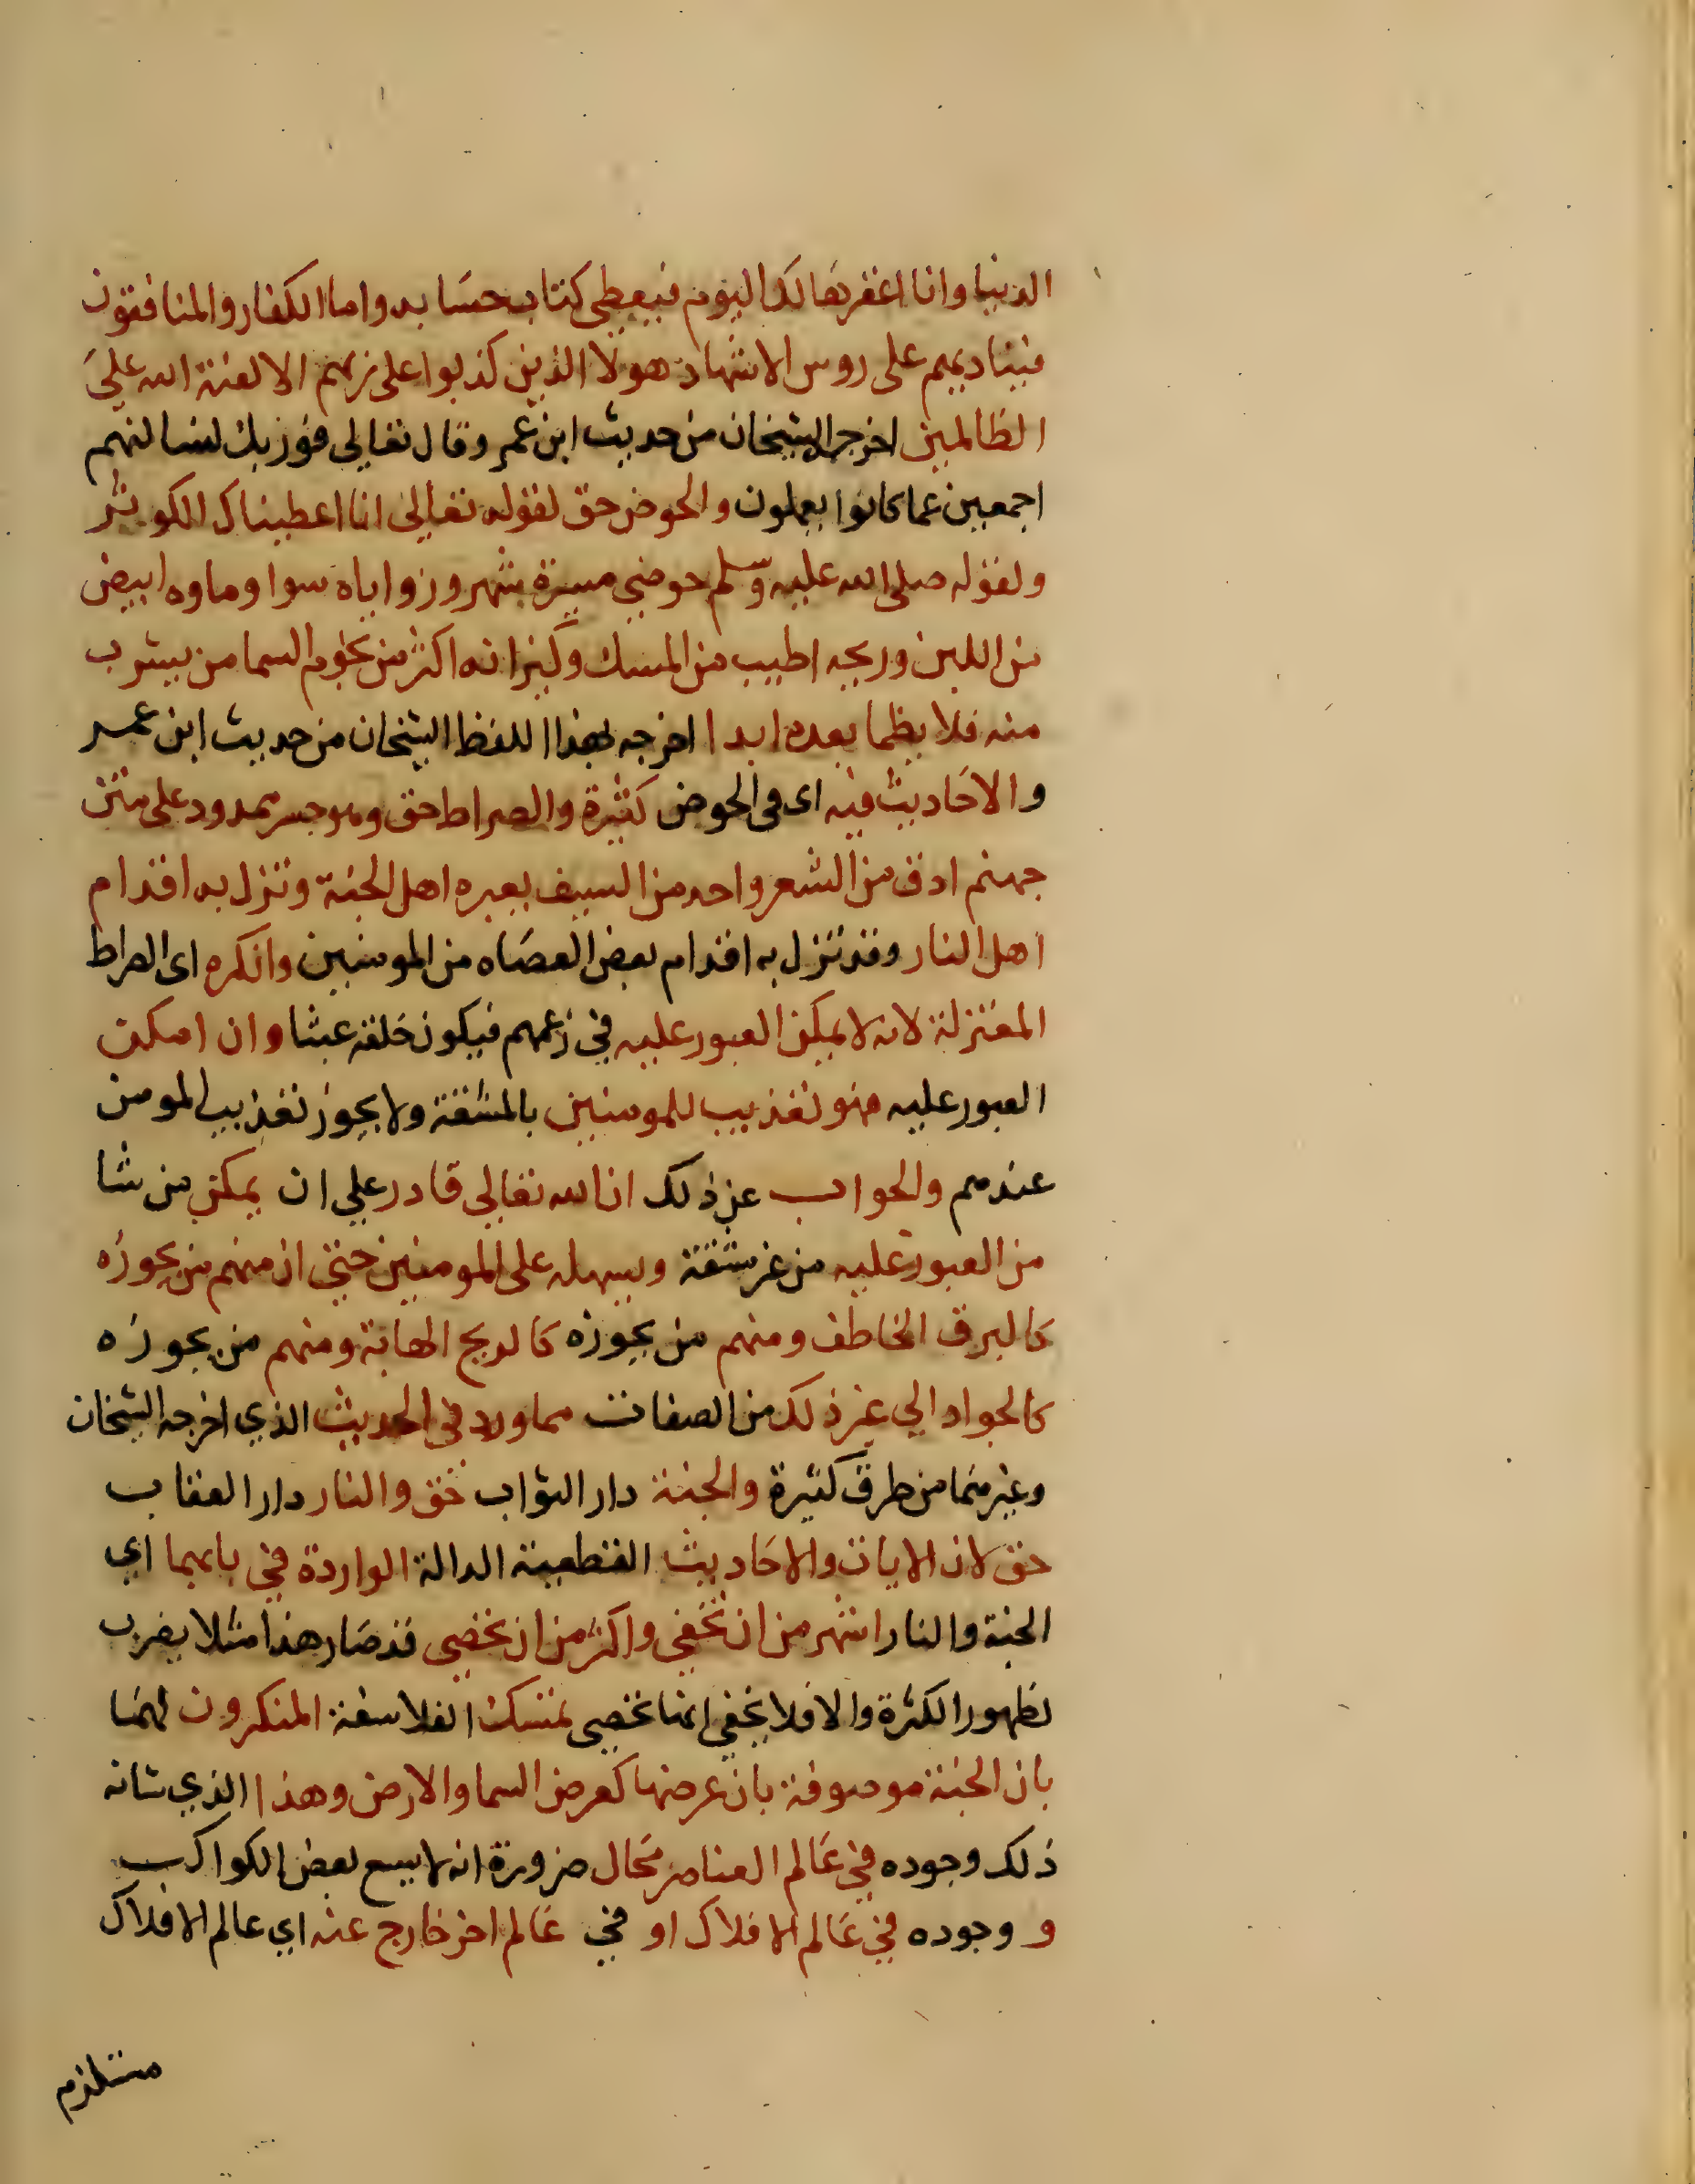 الدنيا وانا اغفرها لك اليوم فيعطى كتاب حسابه واما الكفار والمنافقون
فيناديهم على روس الاشهاد هولا الذين كذبوا على ربهم الا لعنة الله على
الظالمين اخرجه الشيخان من حديث ابن عمر وقال تعالى فوربك لنسالنهم
اجمعين عما كانوا يعملون والحوض حق لقوله تعالى انا اعطيناك الكوثر
ولقوله صلى الله عليه وسلم حوضي مسيرة شهر وزواياه سوا وماوه ابيض
من اللبن وريحه اطيب من المسك وكيزانه اكثر من نجوم السما من يشرب
منه فلا يظما بعده ابدا اخرجه بهذا اللفظ الشيخان من حديث ابن عمر
والاحاديث فيه اى فى الحوض كثيرة والصراط حق وهو جسر ممدود على متن
جهنم ادق من الشعر واحد من السيف يعبره اهل الجنة وتزل به اقدام
اهل النار وقد تزل به اقدام بعض العصاه من المومنين وانكره اى الصراط
المعتزلة لانه لا يمكن العبور عليه في زعمهم فيكون خلقه عبثا وان امكن
العبور عليه فهو تعذيب للمومنين بالمشقة ولا يجوز تعذيب المومن
عندهم والجواب عن ذلك ان الله تعالى قادر علي ان يمكن من شا
من العبور عليه من غير مشقة ويسهله على المومنين حتي ان منهم من يجوزه
كالبرق الخاطف ومنهم من يجوزه كالريح الهابة ومنهم من يجوزه
كالجواد الي غير ذلك من الصفات مما ورد في الحديث الذي اخرجه الشيخان
وغيرهما من طرق كثيرة والجنة دار الثواب حق والنار دار العقاب
حق لان الايات والاحاديث القطعية الدالة الواردة في بابهما اي
الجنة والنار اشهر من ان تخفي واكثر من ان تحصي قد صار هذا مثلا يضرب
لظهور الكثرة والا فلا يخفي انها تحصى تمسك الفلاسفة المنكرون لهما
بان الجنة موصوفة بان عرضها كعرض السما والارض وهذا الذي شانه
ذلك وجوده في عالم العناصر محال ضرورة انه لا يسع بعض الكواكب
و وجوده في عالم الافلاك او في عالم اخر خارج عنه اي عالم الافلاك
مستلزم